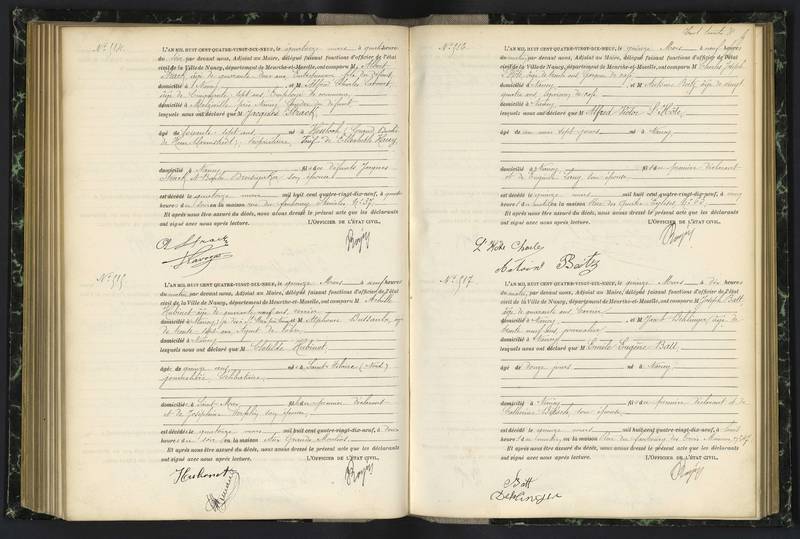 N° 514.
L'AN MIL HUIT CENT QUATRE-VINGT-DIX-NEUF, le quatorze mars à quatre heures
du soir, par devant nous, Adjoint au Maire, délégué faisant fonctions d'officier de l'état
civil de la Ville de Nancy, département de Meurthe-et-Moselle, ont comparu M Albert
Strack, âgé de quarante ans, fils du défunt
domicilié à Nancy et M Alfred Charles
âgé de cinquante sept ans,
domicilié à Malzéville près Nancy, du défunt
lesquels nous ont déclaré que M Jacques Strack,
âgé de soixante sept ans né à (Grand Duché
de), propriétaire, Veuf de Elisabeth
domicilié à Nancy fils des défunts Jacques
Strack et son épouse
est décédé le quatorze mars mil huit cent quatre-vingt-dix-neuf, à quatre
heures du soir en la maison rue du faubourg Stanislas N° 37.
Et après nous être assuré du décès, nous avons dressé le présent acte que les déclarants
ont signé avec nous après lecture. L'OFFICIER DE L'ÉTAT CIVIL,
A Strack
N° 515.
L'AN MIL HUIT CENT QUATRE-VINGT-DIX-NEUF, le quinze Mars à neuf heures
du matin, par devant nous, Adjoint au Maire, délégué faisant fonctions d'officier de l'état
civil de la Ville de Nancy, département de Meurthe-et-Moselle, ont comparu M Achille
Hubinet âgé de quarante neuf ans, verrier
domicilié à et M Alphonse Bussard,
de trente sept ans Agent de
domicilié à Nancy
lesquels nous ont déclaré que M Clotilde Hubinet,
âgée de quinze ans, née à Saint (Nord)
Célibataire,
domiciliée à Saint-Max, fille du premier déclarant
et de Joséphine son épouse,
est décédée le quatorze mars mil huit cent quatre-vingt-dix-neuf, à
heures du soir en la maison rue Grands Moulins.
Et après nous être assuré du décès, nous avons dressé le présent acte que les déclarants
ont signé avec nous après lecture. L'OFFICIER DE L'ÉTAT CIVIL,
Hubinet
N° 516.
L'AN MIL HUIT CENT QUATRE-VINGT-DIX-NEUF, le quinze Mars à neuf heures
du matin, par devant nous, Adjoint au Maire, délégué faisant fonctions d'officier de l'état
civil de la Ville de Nancy, département de Meurthe-et-Moselle, ont comparu M Charles Joseph
L'Hôte, âgé de trente ans garçon de café
domicilié à Nancy et M Antoine Baitz âgé de vingt
quatre ans, garçon de café
domicilié à Nancy
lesquels nous ont déclaré que M Alfred Victor L'Hôte,
âgé de un mois sept jours né à Nancy
domicilié à Nancy fils du premier déclarant
et de Eugénie son épouse
est décédé le quinze mars mil huit cent quatre-vingt-dix-neuf, à
heures du matin en la maison Rue des Quatre Eglises N° 63.
Et après nous être assuré du décès, nous avons dressé le présent acte que les déclarants
ont signé avec nous après lecture. L'OFFICIER DE L'ÉTAT CIVIL,
L'Hôte Charle
Antoine Baitz
N° 517.
L'AN MIL HUIT CENT QUATRE-VINGT-DIX-NEUF, le quinze Mars à dix heures
du matin, par devant nous, Adjoint au Maire, délégué faisant fonctions d'officier de l'état
civil de la Ville de Nancy, département de Meurthe-et-Moselle, ont comparu M Joseph Batt
âgé de quarante ans
domicilié à Nancy et M Jacob Dehlinger âgé de
trente neuf ans, journalier
domicilié à Nancy
lesquels nous ont déclaré que M Emile Eugène Batt,
âgé de douze jours né à Nancy
domicilié à Nancy fils du premier déclarant et de
Catherine son épouse,
est décédé le quinze mars mil huit cent quatre-vingt-dix-neuf, à
heures du matin, en la maison Rue du faubourg des Trois Maisons
Et après nous être assuré du décès, nous avons dressé le présent acte que les déclarants
ont signé avec nous après lecture. L'OFFICIER DE L'ÉTAT CIVIL,
Batt
Dehlinger